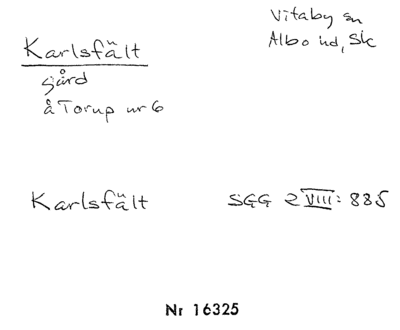 Vitaby sn
Albo hd, Sk
Karlsfält
gård
å Torup nr 6
Karlsfält SGG 2 VIII: 885
Nr 16325